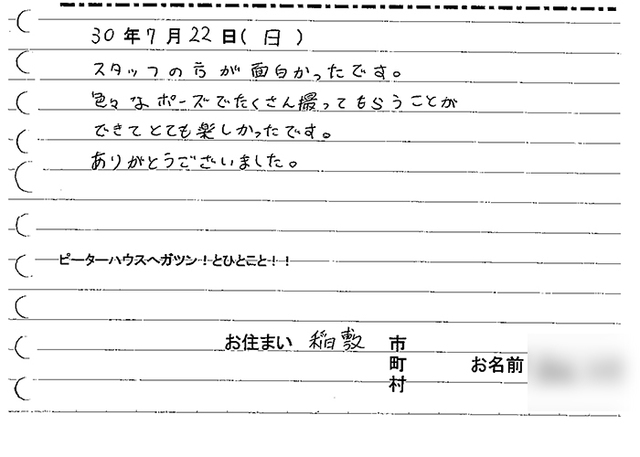 30年7月22日(日)
スタッフの方が面白かったです。
色々なポーズでたくさん撮ってもらうことが
できてとても楽しかったです。
ありがとうございました。
ピーターハウスへガツン！とひとこと！！
お住まい 稲敷 市
町
村
お名前